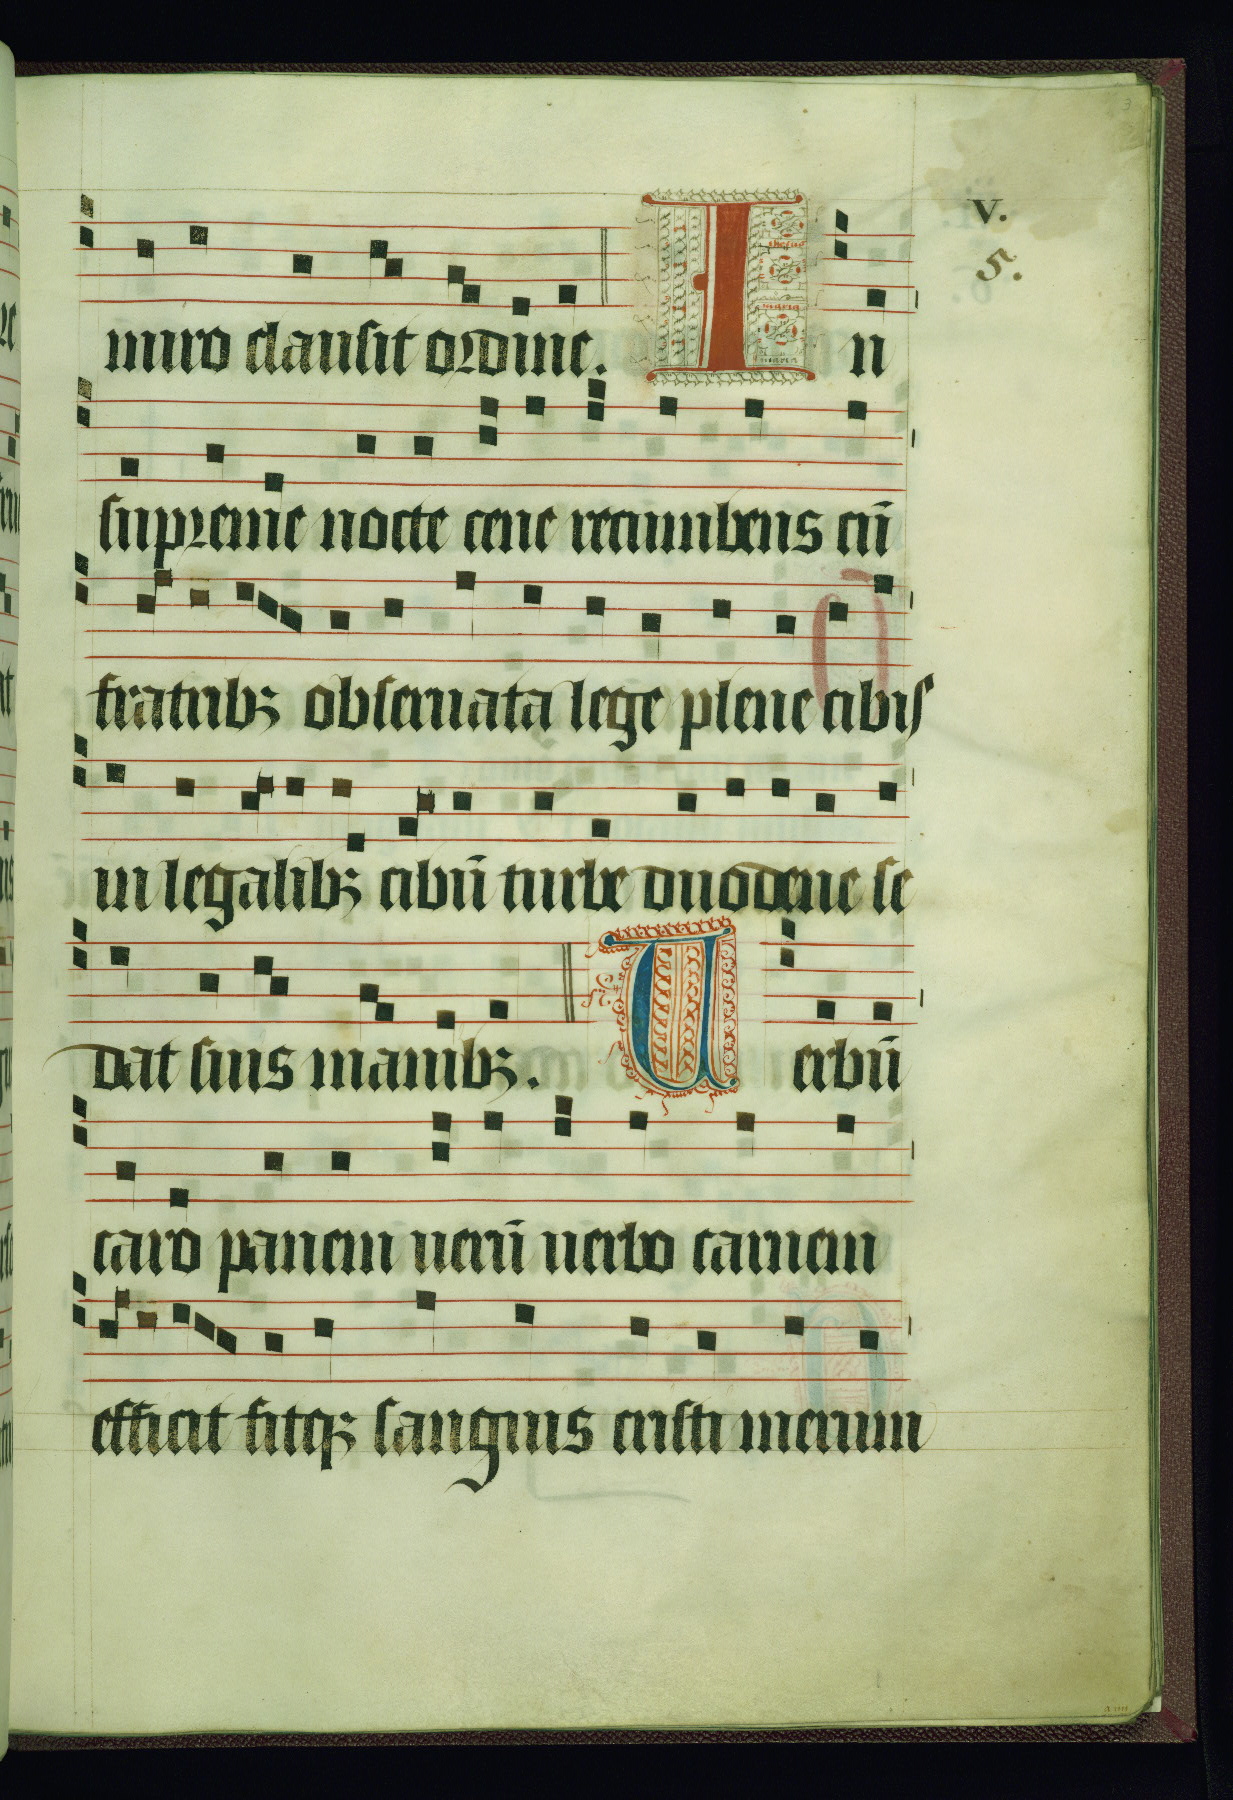 v.
5.
3
miro clausit ordine. In
supreme nocte cene recumbens cū
fratribꝫ obseruata lege plene cibis
in legalibꝫ cibū turbe duodene se
dat suis manibꝫ. Uerbū
caro panem uerū uerbo carnem
efficit fitqꝫ sanguis cristi merum